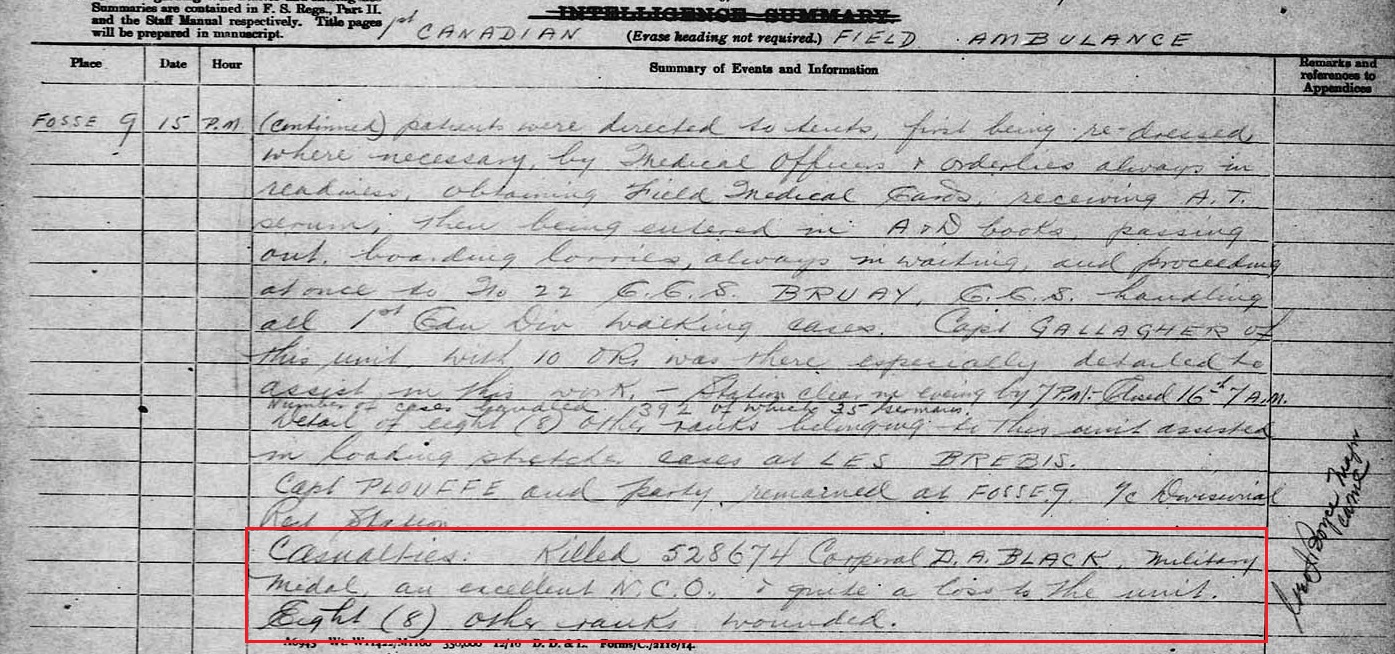 Summaries are contained in F. S. Regs., Part II.
and the Staff Manual respectively. Title pages
will be prepared in manuscript.
INTELLIGENCE SUMMARY.
(Erase heading not required.)
1st CANADIAN FIELD AMBULANCE
Place Date Hour Summary of Events and Information Remarks and references to Appendices
FOSSE 9 15 P.M. (continued) patients were directed to tents, first being re-dressed,
where necessary, by Medical Officers & orderlies always in
readiness, obtaining Field Medical Cards, receiving A.T.
serum, then being entered in A & D books, passing
out, boarding lorries, always in waiting, and proceeding
at once to No 22 C.C.S. BRUAY, C.C.S. handling
all 1st Can Div walking cases. Capt GALLAGHER of
this unit with 10 ORs was there especially detailed to
assist in this work. - Station clear in evening by 7 P.M. - Closed 16th 7 A.M.
Number of cases 392 of which 35 Germans.
Detail of eight (8) other ranks belonging to this unit assisted
in loading stretcher cases at LES BREBIS.
Capt PLOUFFE and party remained at FOSSE 9 i/c Divisional
Rest Station
Casualties: Killed 528674 Corporal D.A. BLACK, Military
Medal, an excellent N.C.O. & quite a loss to the unit.
Eight (8) other ranks wounded.
350,000 12/16 D. D. & L. Forms/C./2118/14.
Major
CAMC